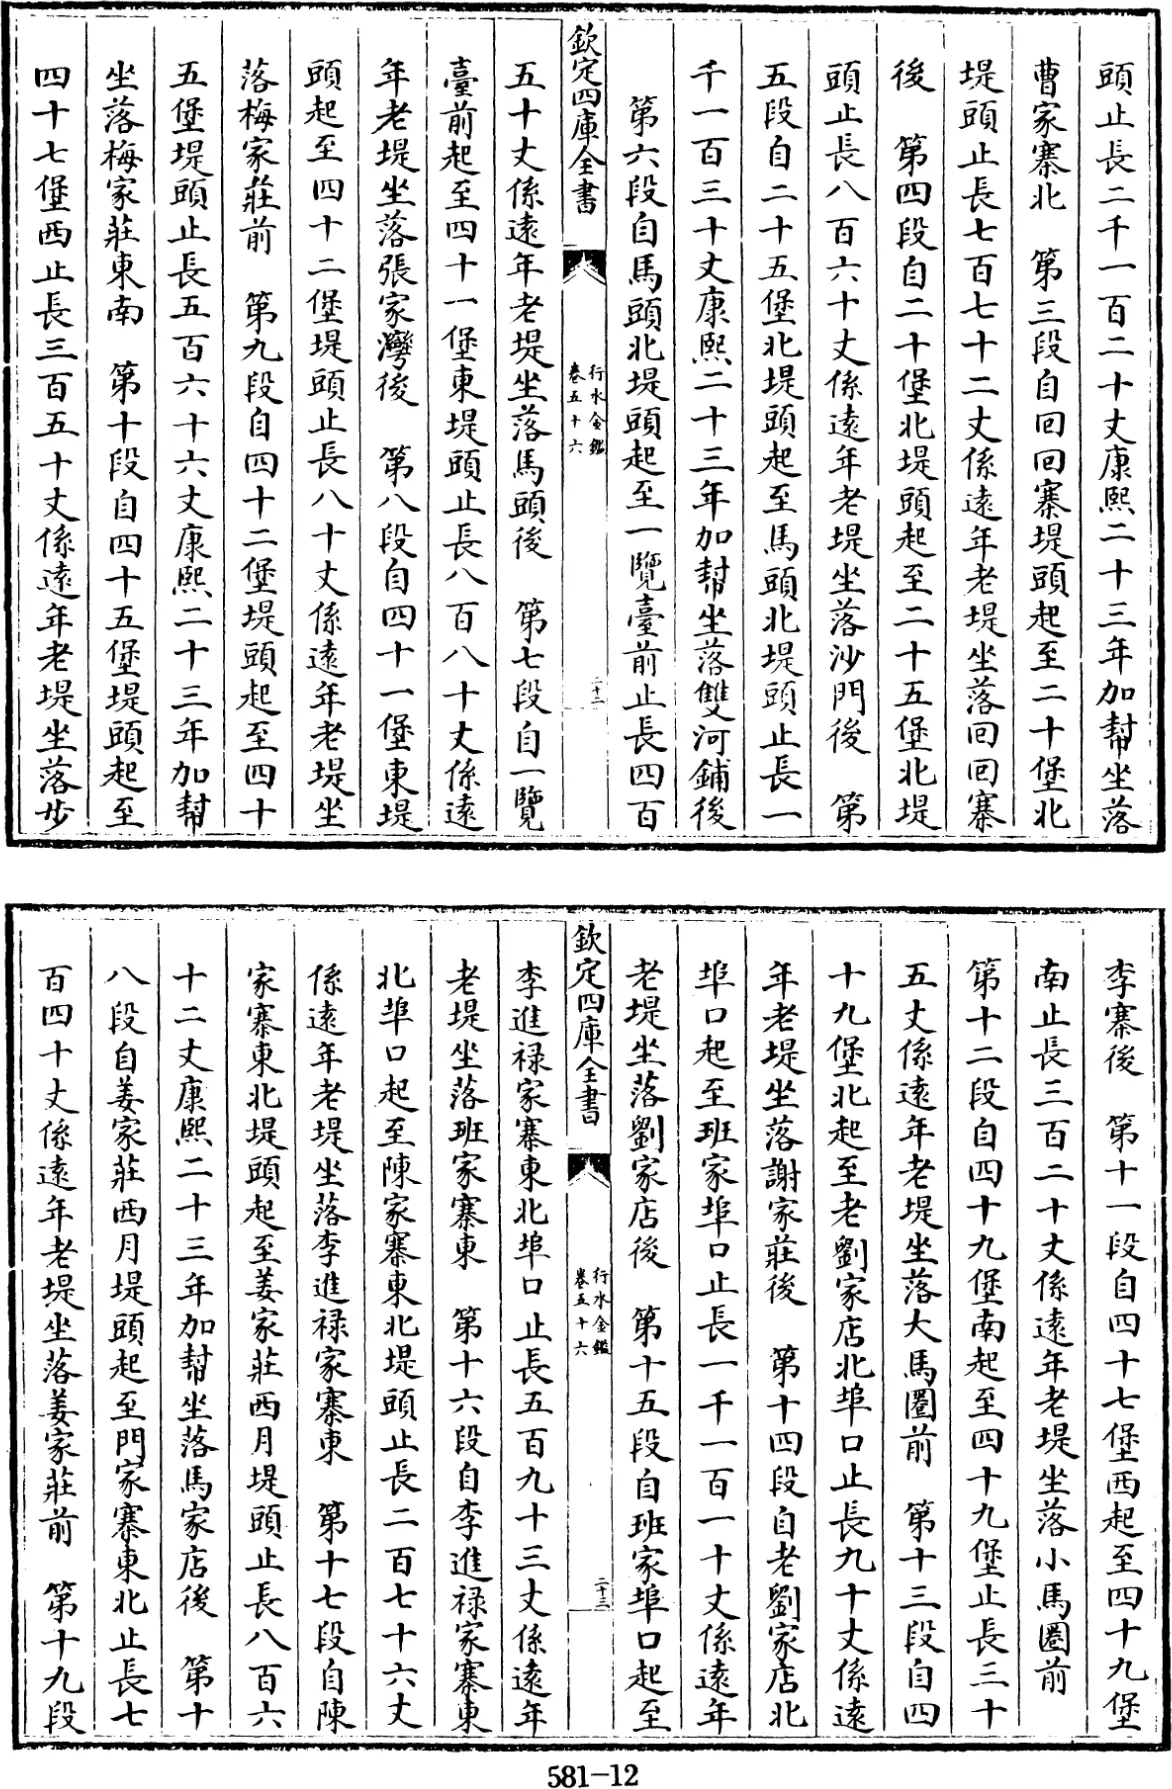 頭止長二千一百二十丈康熙二十三年加幇坐落
曹家寨北　第三段自回回寨堤頭起至二十堡北
堤頭止長七百七十二丈係遠年老堤坐落回回寨
後　第四段自二十堡北堤頭起至二十五堡北堤
頭止長八百六十丈係遠年老堤坐落沙門後　第
五段自二十五堡北堤頭起至馬頭北堤頭止長一
千一百三十丈康熙二十三年加幇坐落雙河鋪後
第六段自馬頭北堤頭起至一覽臺前止長四百
欽定四庫全書
行水金鑑
卷五十六
二十二
五十丈係遠年老堤坐落馬頭後　第七段自一覽
臺前起至四十一堡東堤頭止長八百八十丈係遠
年老堤坐落張家灣後　第八段自四十一堡東堤
頭起至四十二堡堤頭止長八十丈係遠年老堤坐
落梅家莊前　第九段自四十二堡堤頭起至四十
五堡堤頭止長五百六十六丈康熙二十三年加幇
坐落梅家莊東南　第十段自四十五堡堤頭起至
四十七堡西止長三百五十丈係遠年老堤坐落步
李寨後　第十一段自四十七堡西起至四十九堡
南止長三百二十丈係遠年老堤坐落小馬圈前
第十二段自四十九堡南起至四十九堡止長三十
五丈係遠年老堤坐落大馬圈前　第十三段自四
十九堡北起至老劉家店北埠口止長九十丈係遠
年老堤坐落謝家莊後　第十四段自老劉家店北
埠口起至班家埠口止長一千一百一十丈係遠年
老堤坐落劉家店後　第十五段自班家埠口起至
欽定四庫全書
行水金鑑
卷五十六
二十三
李進祿家寨東北埠口止長五百九十三丈係遠年
老堤坐落班家寨東　第十六段自李進祿家寨東
北埠口起至陳家寨東北堤頭止長二百七十六丈
係遠年老堤坐落李進祿家寨東　第十七段自陳
家寨東北堤頭起至姜家莊西月堤頭止長八百六
十二丈康熙二十三年加幇坐落馬家店後　第十
八段自姜家莊西月堤頭起至門家寨東北止長七
百四十丈係遠年老堤坐落姜家莊前　第十九段
581-12